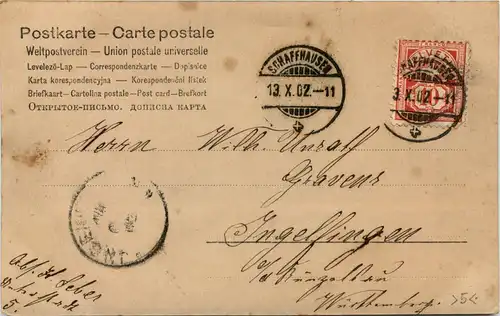 Postkarte – Carte postale
Weltpostverein – Union postale universelle
Levelező-Lap – Correspondenzkarte – Dopisnice
Karta korespondencyjna – Korespondenční lístek
Briefkaart – Cartolina postale – Post card – Brefkort
Открытое-письмо. Дописна карта
SCHAFFHAUSEN
13.X.02.–11
SCHAFFHAUSEN
13.X.02.–11
Herrn Wilh. Unrath
Graveur
Ingelfingen
b/ Künzelsau
Württemberg.
Abs. H. Leber
5.
>5<